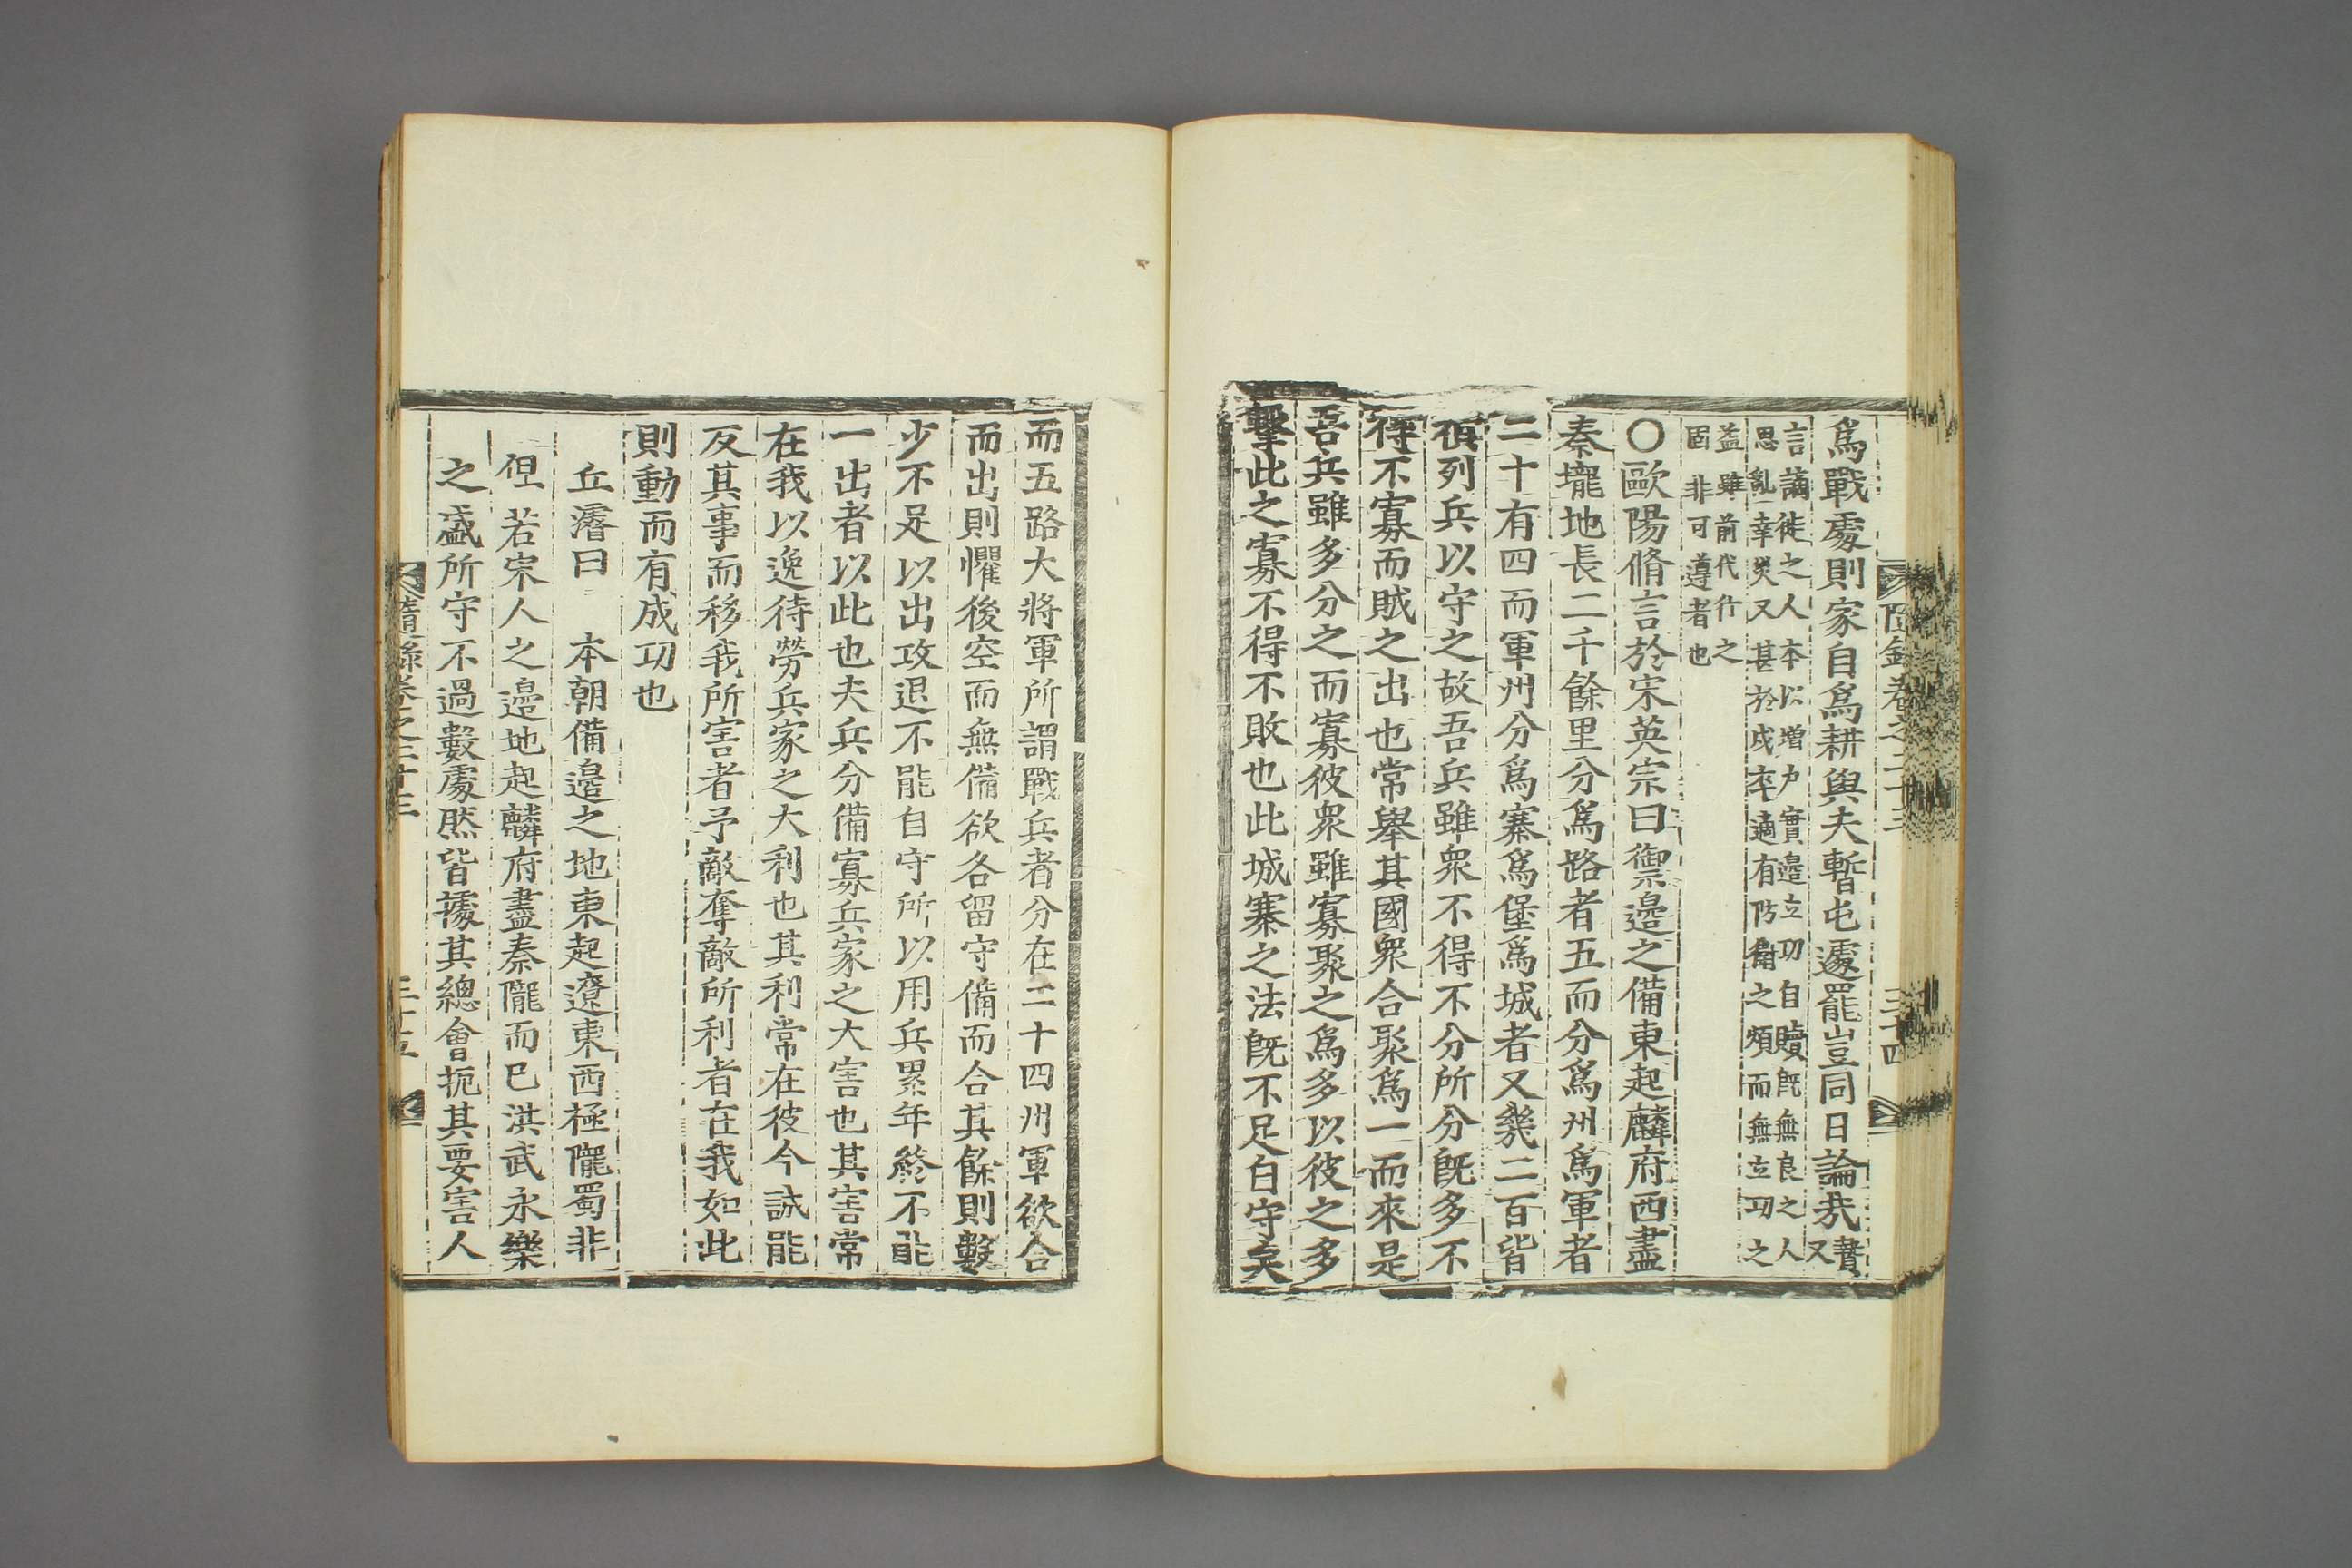 爲戰處則家自爲耕與夫暫屯遽罷豈同日論㢤贄又
言謫徙之人本以增力實邊立功自贖旣無良之人
思亂幸災又甚於戍卒適有防衛之煩而無立功之
益雖前代行之
固非可遵者也
○歐陽脩言於宋英宗曰禦邊之備東起麟府西盡
秦壠地長二千餘里分爲路者五而分爲州爲軍者
二十有四而軍州分爲寨爲堡爲城者又幾二百皆
須列兵以守之故吾兵雖衆不得不分所分旣多不
得不寡而賊之出也常舉其國衆合聚爲一而來是
吾兵雖多分之而寡彼衆雖寡聚之爲多以彼之多
擊此之寡不得不敗也此城寨之法旣不足自守矣
卷之二十三
三十四
而五路大將軍所謂戰兵者分在二十四州軍欲合
而出則懼後空而無備欲各留守備而合其餘則數
少不足以出攻退不能自守所以用兵累年終不能
一出者以此也夫兵分備寡兵家之大害也其害常
在我以逸待勞兵家之大利也其利常在彼今誠能
反其事而移我所害者予敵奪敵所利者在我如此
則動而有成功也
丘濬曰　本朝備邊之地東起遼東西極隴蜀非
但若宋人之邊地起麟府盡秦隴而已洪武永樂
之盛所守不過數處然皆據其總會扼其要害人
卷之二十三
三十五